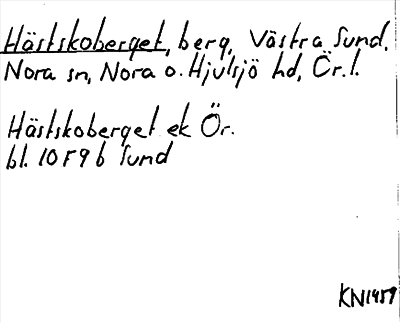 Hästskoberget, berg, Västra Sund,
Nora sn, Nora o. Hjulsjö hd, Ör. l.
Hästskoberget ek Ör.
bl. 10F9b Sund
KN1959